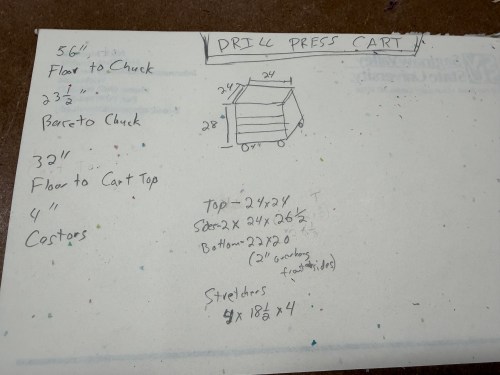 DRILL PRESS CART
56"
Floor to Chuck
23 1/2"
Base to Chuck
32"
Floor to Cart Top
4"
Castors
24
24
28
Top - 24x24
Sides - 2 x 24 x 26 1/2
Bottom - 22x20
(2" overhang
front sides)
Stretchers
4 x 18 1/2 x 4